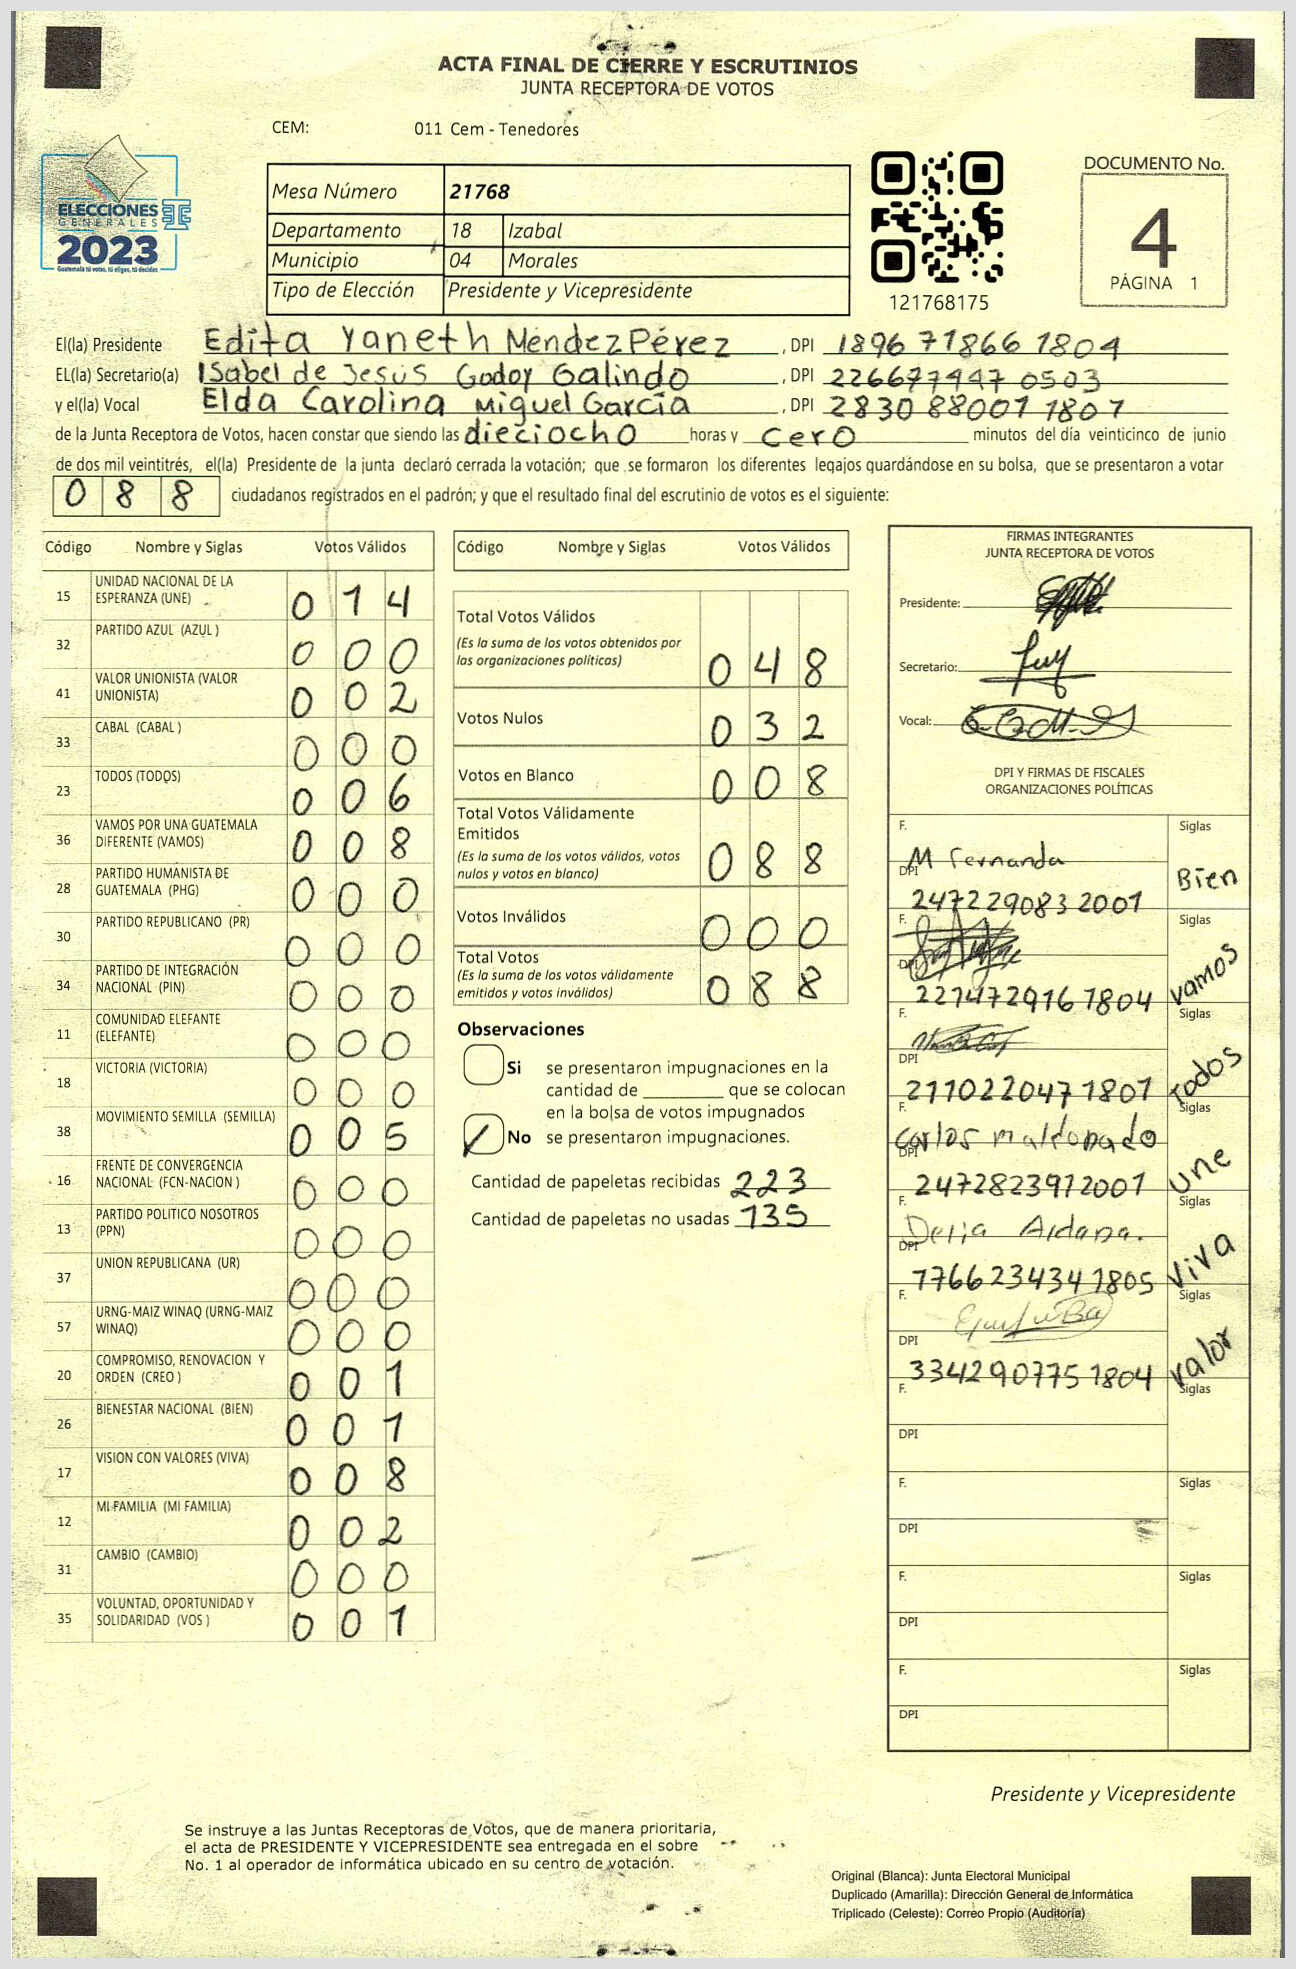 ACTA FINAL DE CIERRE Y ESCRUTINIOS
JUNTA RECEPTORA DE VOTOS
CEM: 011 Cem - Tenedores
ELECCIONES
GENERALES
2023
Guatemala tú votas, tú eliges, tú decides
Mesa Número 21768
Departamento 18 Izabal
Municipio 04 Morales
Tipo de Elección Presidente y Vicepresidente
121768175
DOCUMENTO No.
4
PÁGINA 1
El(la) Presidente Edita Yaneth Méndez Pérez , DPI 1896 71866 1804
EL(la) Secretario(a) ISabel de Jesús Godoy Galindo , DPI 226677447 0503
y el(la) Vocal Elda Carolina Miguel García , DPI 2830 88001 1801
de la Junta Receptora de Votos, hacen constar que siendo las dieciocho horas y cero minutos del día veinticinco de junio
de dos mil veintitrés, el(la) Presidente de la junta declaró cerrada la votación; que se formaron los diferentes legajos guardándose en su bolsa, que se presentaron a votar
0 8 8 ciudadanos registrados en el padrón; y que el resultado final del escrutinio de votos es el siguiente:
Código Nombre y Siglas Votos Válidos
15 UNIDAD NACIONAL DE LA ESPERANZA (UNE) 0 1 4
32 PARTIDO AZUL (AZUL ) 0 0 0
41 VALOR UNIONISTA (VALOR UNIONISTA) 0 0 2
33 CABAL (CABAL ) 0 0 0
23 TODOS (TODOS) 0 0 6
36 VAMOS POR UNA GUATEMALA DIFERENTE (VAMOS) 0 0 8
28 PARTIDO HUMANISTA DE GUATEMALA (PHG) 0 0 0
30 PARTIDO REPUBLICANO (PR) 0 0 0
34 PARTIDO DE INTEGRACIÓN NACIONAL (PIN) 0 0 0
11 COMUNIDAD ELEFANTE (ELEFANTE) 0 0 0
18 VICTORIA (VICTORIA) 0 0 0
38 MOVIMIENTO SEMILLA (SEMILLA) 0 0 5
16 FRENTE DE CONVERGENCIA NACIONAL (FCN-NACION ) 0 0 0
13 PARTIDO POLITICO NOSOTROS (PPN) 0 0 0
37 UNION REPUBLICANA (UR) 0 0 0
57 URNG-MAIZ WINAQ (URNG-MAIZ WINAQ) 0 0 0
20 COMPROMISO, RENOVACION Y ORDEN (CREO ) 0 0 1
26 BIENESTAR NACIONAL (BIEN) 0 0 1
17 VISION CON VALORES (VIVA) 0 0 8
12 MI FAMILIA (MI FAMILIA) 0 0 2
31 CAMBIO (CAMBIO) 0 0 0
35 VOLUNTAD, OPORTUNIDAD Y SOLIDARIDAD (VOS ) 0 0 1
Código Nombre y Siglas Votos Válidos
Total Votos Válidos
(Es la suma de los votos obtenidos por
las organizaciones políticas) 0 4 8
Votos Nulos 0 3 2
Votos en Blanco 0 0 8
Total Votos Válidamente
Emitidos
(Es la suma de los votos válidos, votos
nulos y votos en blanco) 0 8 8
Votos Inválidos 0 0 0
Total Votos
(Es la suma de los votos válidamente
emitidos y votos inválidos) 0 8 8
Observaciones
Si se presentaron impugnaciones en la
cantidad de ________ que se colocan
en la bolsa de votos impugnados
No se presentaron impugnaciones.
Cantidad de papeletas recibidas 223
Cantidad de papeletas no usadas 135
FIRMAS INTEGRANTES
JUNTA RECEPTORA DE VOTOS
Presidente:
Secretario:
Vocal:
DPI Y FIRMAS DE FISCALES
ORGANIZACIONES POLÍTICAS
F. M Fernanda Siglas
DPI 247229083 2001 Bien
F. Siglas
DPI 2214729161804 vamos
F. Siglas
DPI 2110220471801 Todos
F. Carlos maldonado Siglas
DPI 2472823912001 une
F. Siglas
DPI 1766234341805 Viva
F. Siglas
DPI 3342907751804 valor
F. Siglas
DPI
F. Siglas
DPI
F. Siglas
DPI
F. Siglas
DPI
Presidente y Vicepresidente
Se instruye a las Juntas Receptoras de Votos, que de manera prioritaria,
el acta de PRESIDENTE Y VICEPRESIDENTE sea entregada en el sobre
No. 1 al operador de informática ubicado en su centro de votación.
Original (Blanca): Junta Electoral Municipal
Duplicado (Amarilla): Dirección General de Informática
Triplicado (Celeste): Correo Propio (Auditoría)